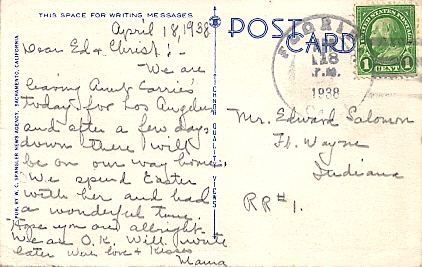 THIS SPACE FOR WRITING MESSAGES
April 18, 1938
Dear Ed & Christ:-
We are
leaving Aunt Carrie's
today for Los Angeles
and after a few days
down there will
be on our way home.
We spend Easter
with her and had
a wonderful time.
Hope you are allright.
We are O.K. Will write
later With love & Kisses
Mama
POST CARD
1938
UNITED STATES POSTAGE
1 CENT 1
Mr. Edward Salomon
Ft. Wayne
Indiana
RR#1.
NEWS AGENCY, SACRAMENTO, CALIFORNIA
QUALITY VIEWS